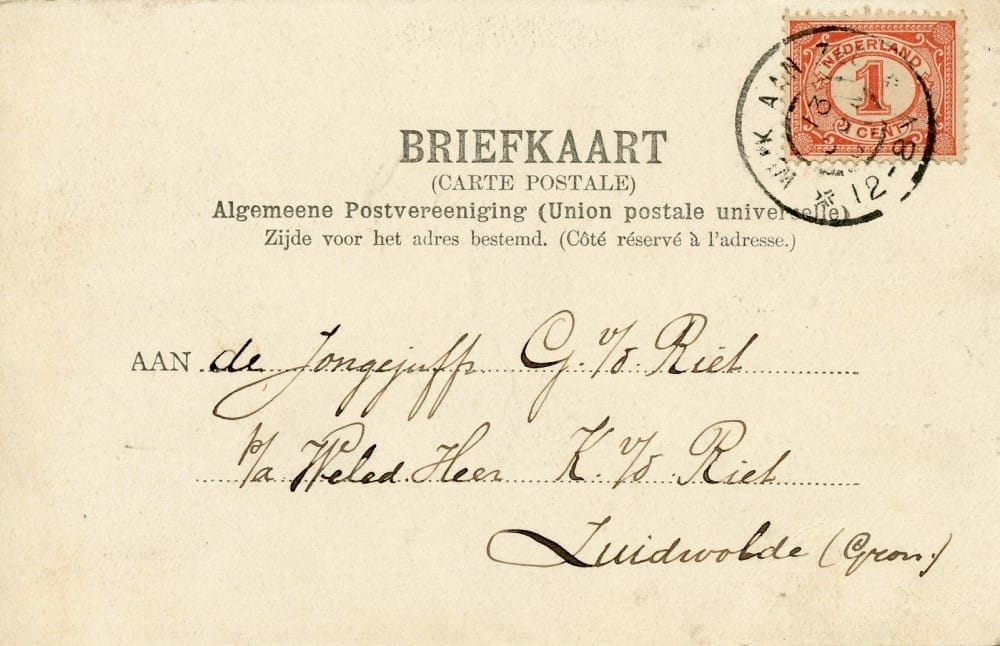 NEDERLAND
1
CENT
WIJK AAN Z
12-8
BRIEFKAART
(CARTE POSTALE)
Algemeene Postvereeniging (Union postale universelle)
Zijde voor het adres bestemd. (Côté réservé à l'adresse.)
AAN de Jongejuffr G. v/d. Riet
p/a Weled. Heer K. v/d. Riet
Zuidwolde (Gron.)